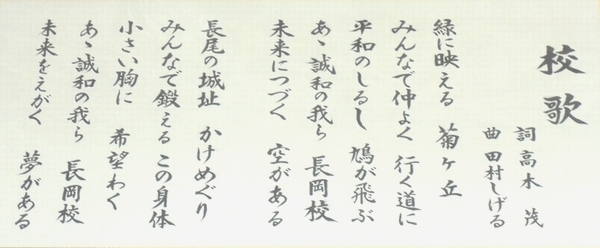 校歌
詞 高木 茂
曲 田村しげる
緑に映える 菊ヶ丘
みんなで仲よく 行く道に
平和のしるし 鳩が飛ぶ
あゝ誠和の我ら 長岡校
未来につづく 空がある
長尾の城址 かけめぐり
みんなで鍛える この身体
小さい胸に 希望わく
あゝ誠和の我ら 長岡校
未来をえがく 夢がある